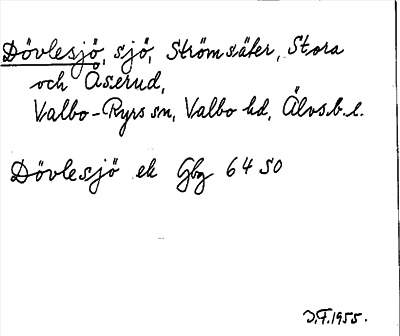 Dövlesjö, sjö, Strömsäter, Stora
och Åserud,
Valbo-Ryrs sn, Valbo hd, Älvsb. l.
Dövlesjö ek Gbg 64 SO
J.F. 1955.